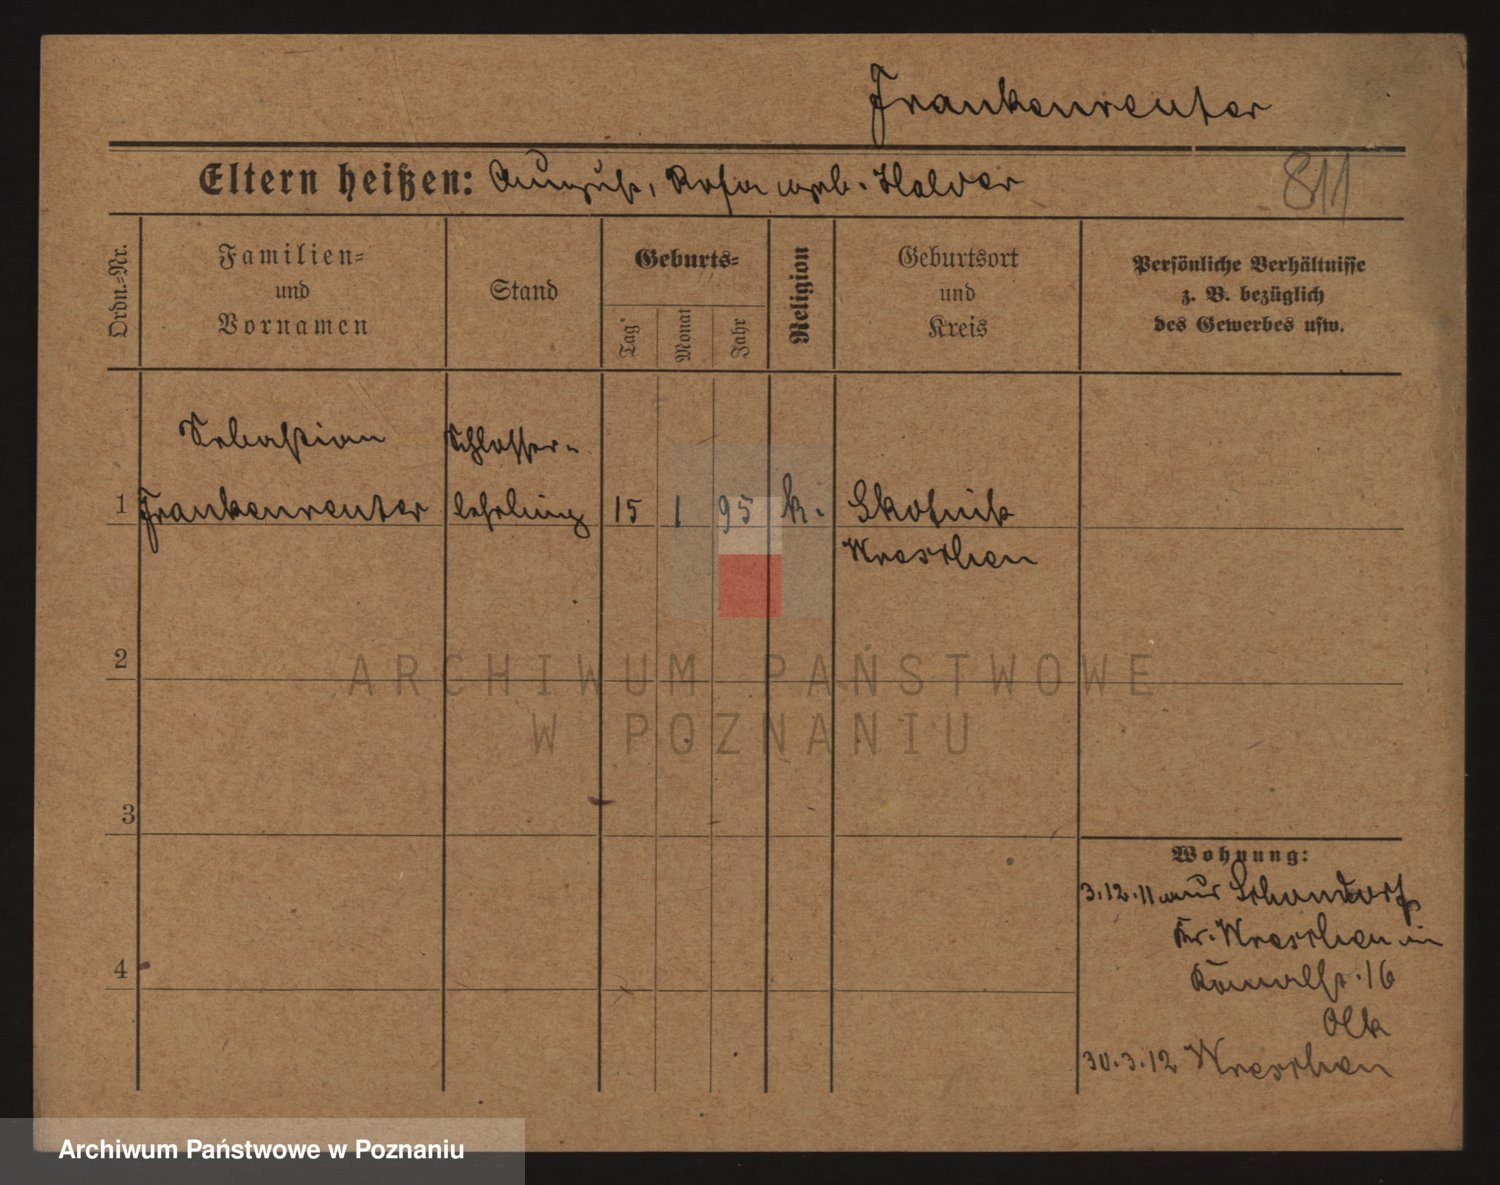 Frankenreuter
Eltern heißen: August, Rosa geb. Halver
811
Ordn.-Nr.
Familien-
und
Vornamen
Stand
Geburts-
Tag
Monat
Jahr
Religion
Geburtsort
und
Kreis
Persönliche Verhältnisse
z. B. bezüglich
des Gewerbes usw.
Sebastian Schlosser-
1 Frankenreuter lehrling 15 1 95 k. Skotnik
Wreschen
2
3
4
Wohnung:
3.12.11 aus Schondorf
Kr. Wreschen in
16
Olk
30.3.12 Wreschen
ARCHIWUM PAŃSTWOWE
W POZNANIU
Archiwum Państwowe w Poznaniu